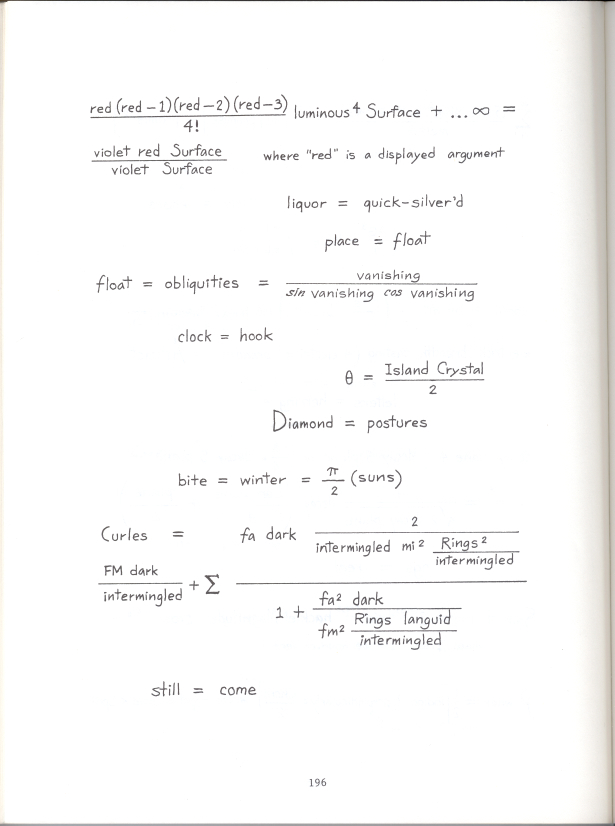 red (red – 1)(red – 2)(red – 3) luminous⁴ Surface + ... ∞ =
4!
violet red Surface where "red" is a displayed argument
violet Surface
liquor = quick-silver'd
place = float
float = obliquities = vanishing
sin vanishing cos vanishing
clock = hook
θ = Island Crystal
2
Diamond = postures
bite = winter = π/2 (suns)
Curles = fa dark 2
intermingled mi² Rings²
intermingled
FM dark
intermingled + Σ
1 + fa² dark
fm² Rings languid
intermingled
still = come
196